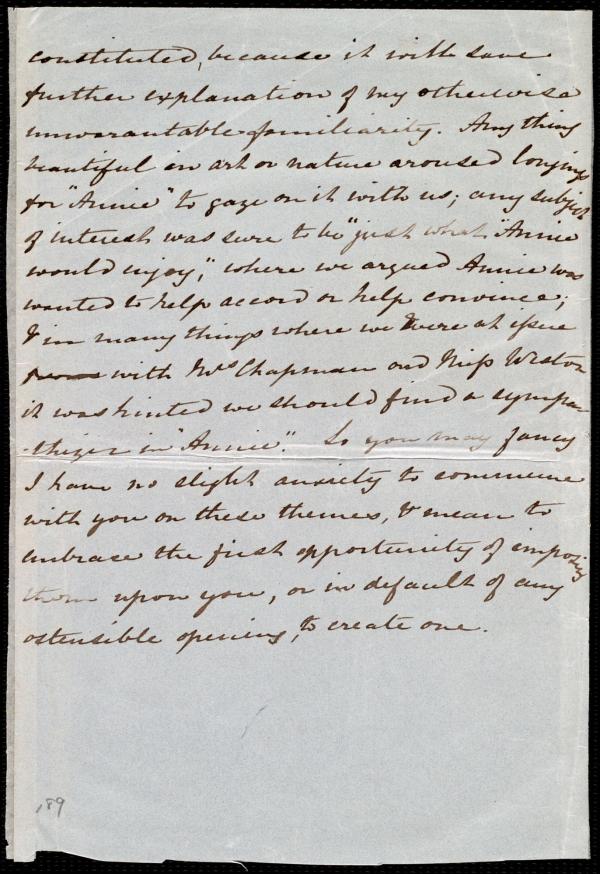 constituted, because it will save
further explanation of my otherwise
unwarantable familiarity. Any thing
beautiful in art or nature aroused longings
for "Annie" to gaze on it with us; any subject
of interest was sure to be "just what Annie
would enjoy", where we argued Annie was
wanted to help accord or help convince;
& in many things where we were at issue
with Mrs Chapman and Miss Weston
it was hinted we should find a sympa
-thizer in "Annie". So you may fancy
I have no slight anxiety to commune
with you on these themes, & mean to
embrace the first opportunity of imposing
them upon you, or in default of any
ostensible opening, to create one.
189